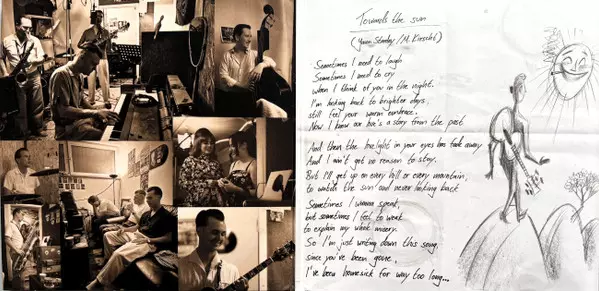 Towards the sun
(Yvonn Standay / M. Kirscht)
Sometimes I need to laugh
Sometimes I need to cry
when I think of you in the night.
I'm looking back to brighter days,
still feel your warm embrace.
Now I know our love's a story from the past
And then the firelight in your eyes has fade away
And I ain't got no reason to stay.
But I'll get up on every hill or every mountain,
to watch the sun and never looking back
Sometimes I wanna speak,
but sometimes I feel to weak
to explain my whole misery.
So I'm just writing down this song,
since you've been gone,
I've been homesick for way too long...